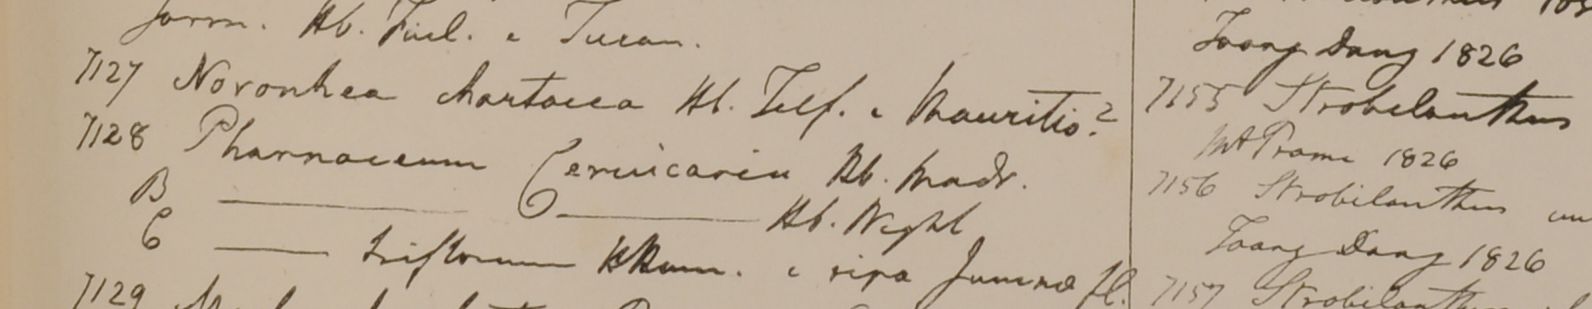 Hb. Finl. e
7127 Noronhea chartacea Hb. Telf. e Mauritio?
7128 Pharnaceum Cervicaria Hb. Madr.
B ——— ——— Hb. Wight
C —— triflorum e ripa Jumnae fl.
7129
Toong Dang 1826
7155 Strobilanthus
Mt Prome 1826
7156 Strobilanthus
Toong Dang 1826
7157 Strobilanthus